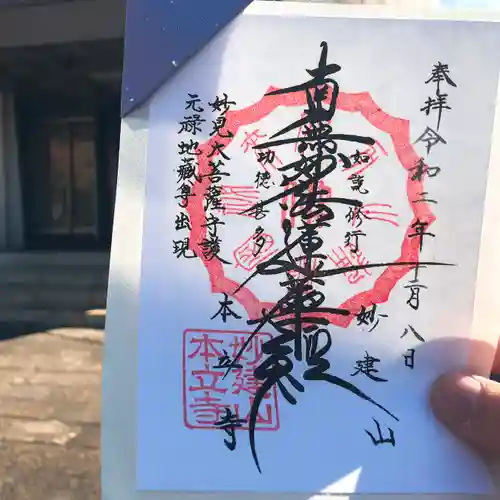 奉拝 令和二年十一月八日
妙建山
如説修行
南無妙法蓮華経
功徳甚多
本立寺
妙見大菩薩守護
元禄地蔵尊出現
妙建山
本立寺